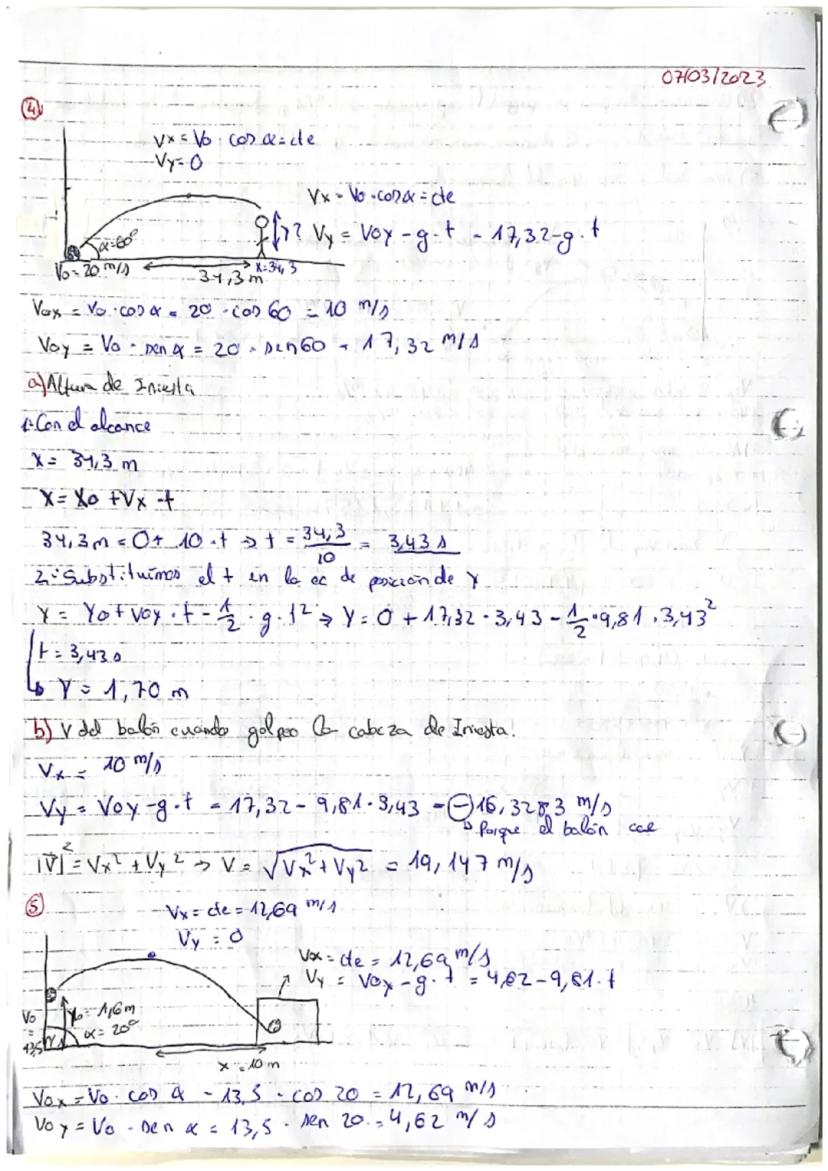 07/03/2023
4
Vx = Vo · cos α = cte
Vy = 0
Vx = Vo · cos α = cte
Y? Vy = Voy - g · t = 17,32 - g · t
α = 60°
Vo = 20 m/s
34,3 m
x = 34,3
Vox = Vo · cos α = 20 · cos 60 = 10 m/s
Voy = Vo · sen α = 20 · sen 60 = 17,32 m/s
a) Altura de Iniesta
1. Con el alcance
X = 34,3 m
X = Xo + Vx · t
34,3 m = 0 + 10 · t → t = 34,3/10 = 3,43 s
2. Substituimos el t en la ec de posición de Y
Y = Yo + Voy · t - 1/2 · g · t² → Y = 0 + 17,32 · 3,43 - 1/2 · 9,81 · 3,43²
t = 3,43 s
Y = 1,70 m
b) V del balón cuando golpeo la cabeza de Iniesta.
Vx = 10 m/s
Vy = Voy - g · t = 17,32 - 9,81 · 3,43 = - 16,3283 m/s
Porque el balón cae
|V|² = Vx² + Vy² → V = √Vx² + Vy² = 19,147 m/s
5
Vx = cte = 12,69 m/s
Vy = 0
Vx = cte = 12,69 m/s
Vy = Voy - g · t = 4,62 - 9,81 · t
Yo = 1,6 m
α = 20°
Vo = 13,5 m/s
x = 10 m
Vox = Vo · cos α = 13,5 · cos 20 = 12,69 m/s
Voy = Vo · sen α = 13,5 · sen 20 = 4,62 m/s